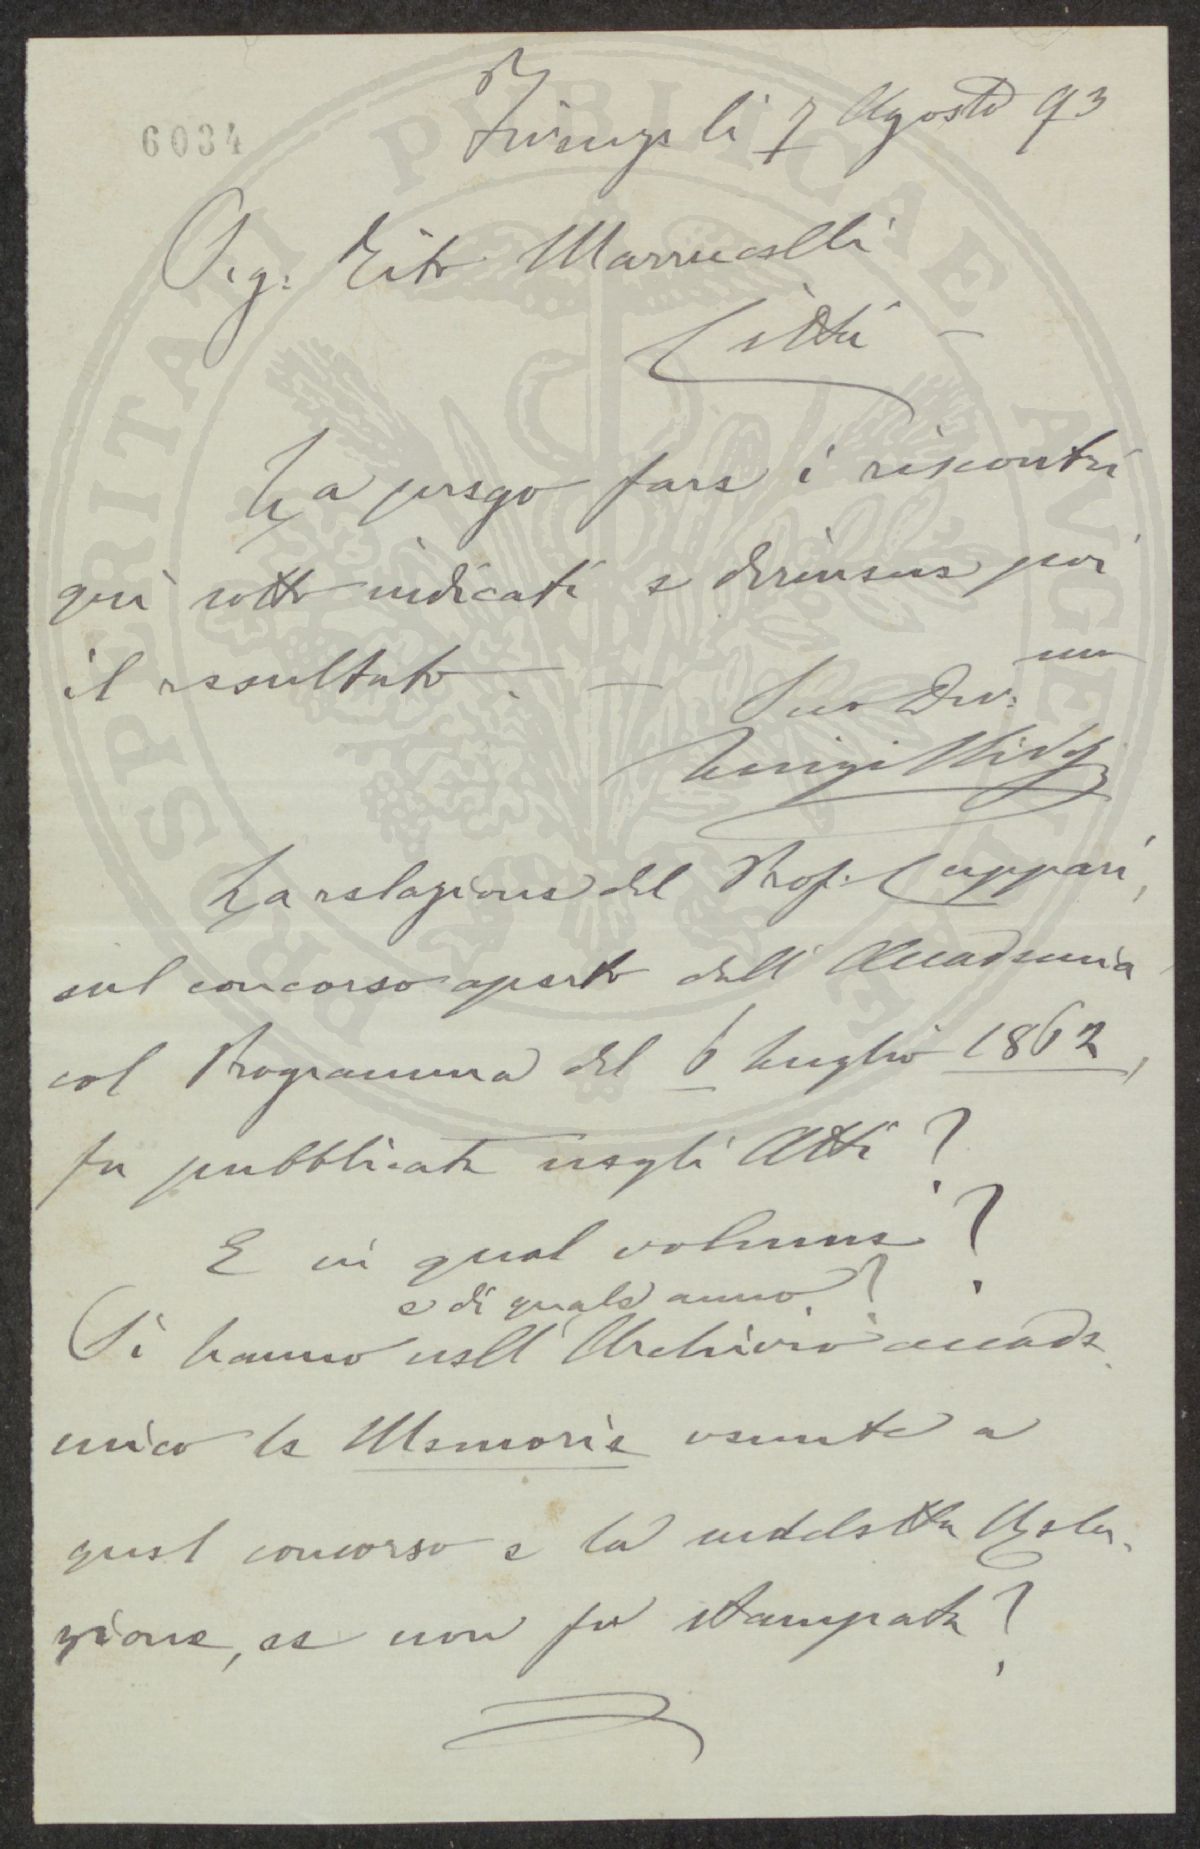 6034
Firenze li 7 Agosto 93
Sig: Tito Marrucelli
Città —
La prego fare i riscontri
qui sotto indicati e dirmene poi
il resultato. —
Suo Dev: mo
Luigi
La relazione del Prof. Cuppari,
sul concorso aperto dall' Accademia
col Programma del 6 Luglio 1862,
fu pubblicata negli Atti?
E in qual volume?
e di quale anno?
Si hanno nell' Archivio accade
mico le Memorie venute a
quel concorso e la suddetta Rela-
zione, se non fu stampata?
PROSPERITATI PUBLICAE AUGENDAE